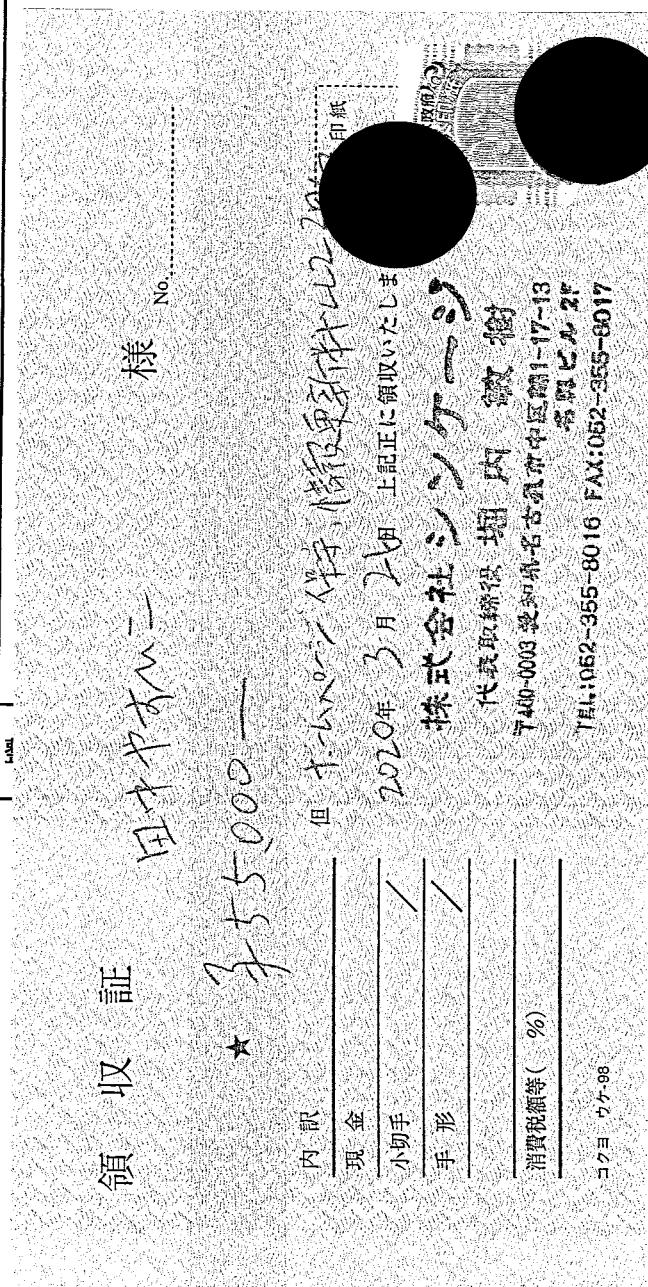 領収証
田中やすひこ 様
No.
★ ¥55,000—
但 ホームページ保守、情報更新料
印紙
2020年 3月 26日 上記正に領収いたしま
内訳
現金
小切手 /
手形 /
消費税額等( %)
株式会社シンケージ
代表取締役 堀内 敏樹
〒460-0003 愛知県名古屋市中区錦1-17-13
名興ビル 2F
TEL:052-355-8016 FAX:052-355-8017
コクヨ ウケ-98